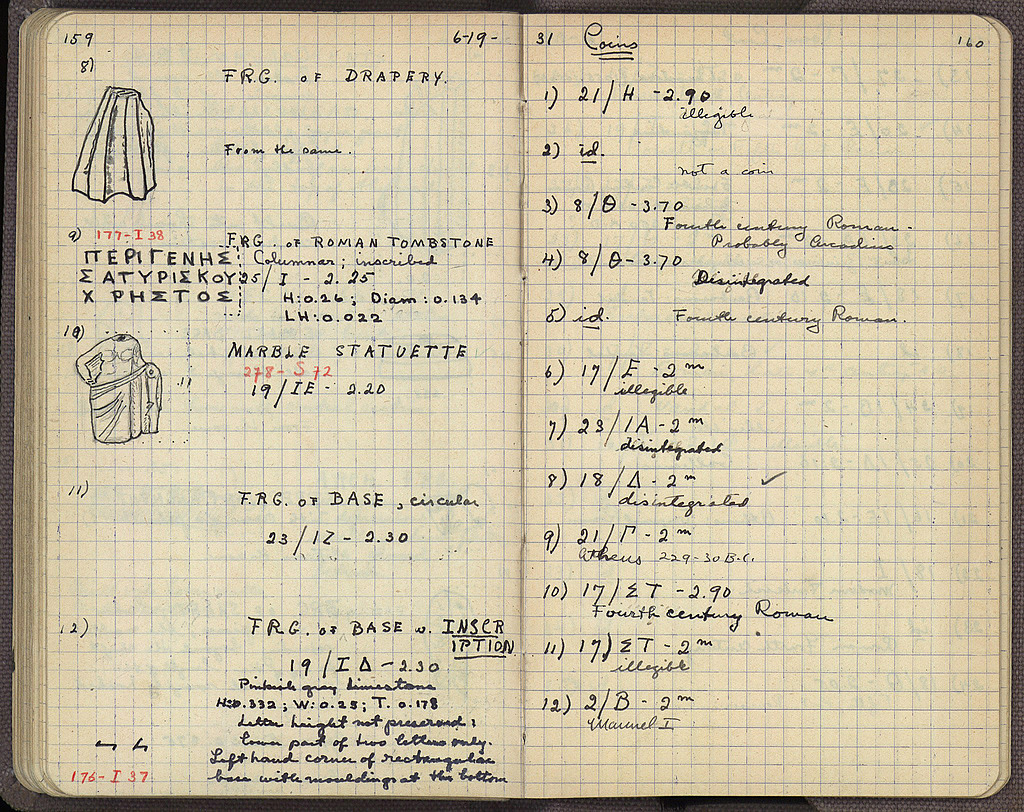 159
6-19-
8)
FRG. OF DRAPERY.
From the same.
9) 177-I 38
FRG. OF ROMAN TOMBSTONE
ΠΕΡΙΓΕΝΗΣ Columnar; inscribed
ΣΑΤΥΡΙΣΚΟΥ 25/I - 2.25
ΧΡΗΣΤΟΣ H: 0.26; Diam: 0.134
LH: 0.022
10)
MARBLE STATUETTE
278-S 72
19/IE - 2.20
11)
FRG. OF BASE, circular
23/IZ - 2.30
12)
FRG. OF BASE w. INSCR
IPTION
19/IΔ - 2.30
Pinkish gray limestone
H: 0.332; W: 0.25; T. 0.178
Letter height not preserved;
lower part of two letters only.
Left hand corner of rectangular
base with mouldings at the bottom
176-I 37
31 Coins 160
1) 21/H - 2.90
illegible
2) id.
not a coin
3) 8/Θ - 3.70
Fourth century Roman -
Probably Arcadius
4) 8/Θ - 3.70
Disintegrated
5) id. Fourth century Roman.
6) 17/E - 2m
illegible
7) 23/IA - 2m
disintegrated
8) 18/Δ - 2m ✓
disintegrated
9) 21/Γ - 2m
Athens 229-30 B.C.
10) 17/ΣΤ - 2.90
Fourth century Roman
11) 17/ΣΤ - 2m
illegible
12) 2/B - 2m
Manuel I